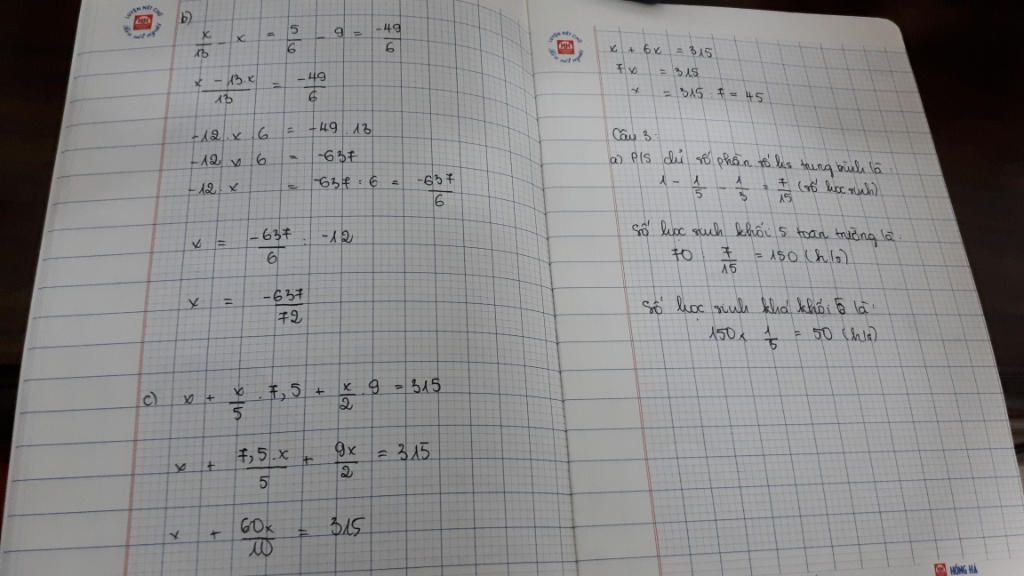 LUYỆN NÉT CHỮ
b)
x/13 - x = 5/6 - 9 = -49/6
x - 13.x/13 = -49/6
-12.x 6 = -49.13
-12 x 6 = -637
-12.x = -637:6 = -637/6
x = -637/6 : -12
x = -637/72
c) x + x/5 . 7,5 + x/2 . 9 = 315
x + 7,5.x/5 + 9x/2 = 315
x + 60x/10 = 315
LUYỆN NÉT CHỮ
x + 6x = 315
7x = 315
x = 315:7 = 45
Câu 3:
a) P/S chỉ số phần số h/s trung bình là
1 - 1/5 - 1/3 = 7/15 (số học sinh)
Số học sinh khối 5 toàn trường là:
70 : 7/15 = 150 (h/s)
Số học sinh khá khối 5 là:
150 x 1/5 = 50 (h/s)
HỒNG HÀ